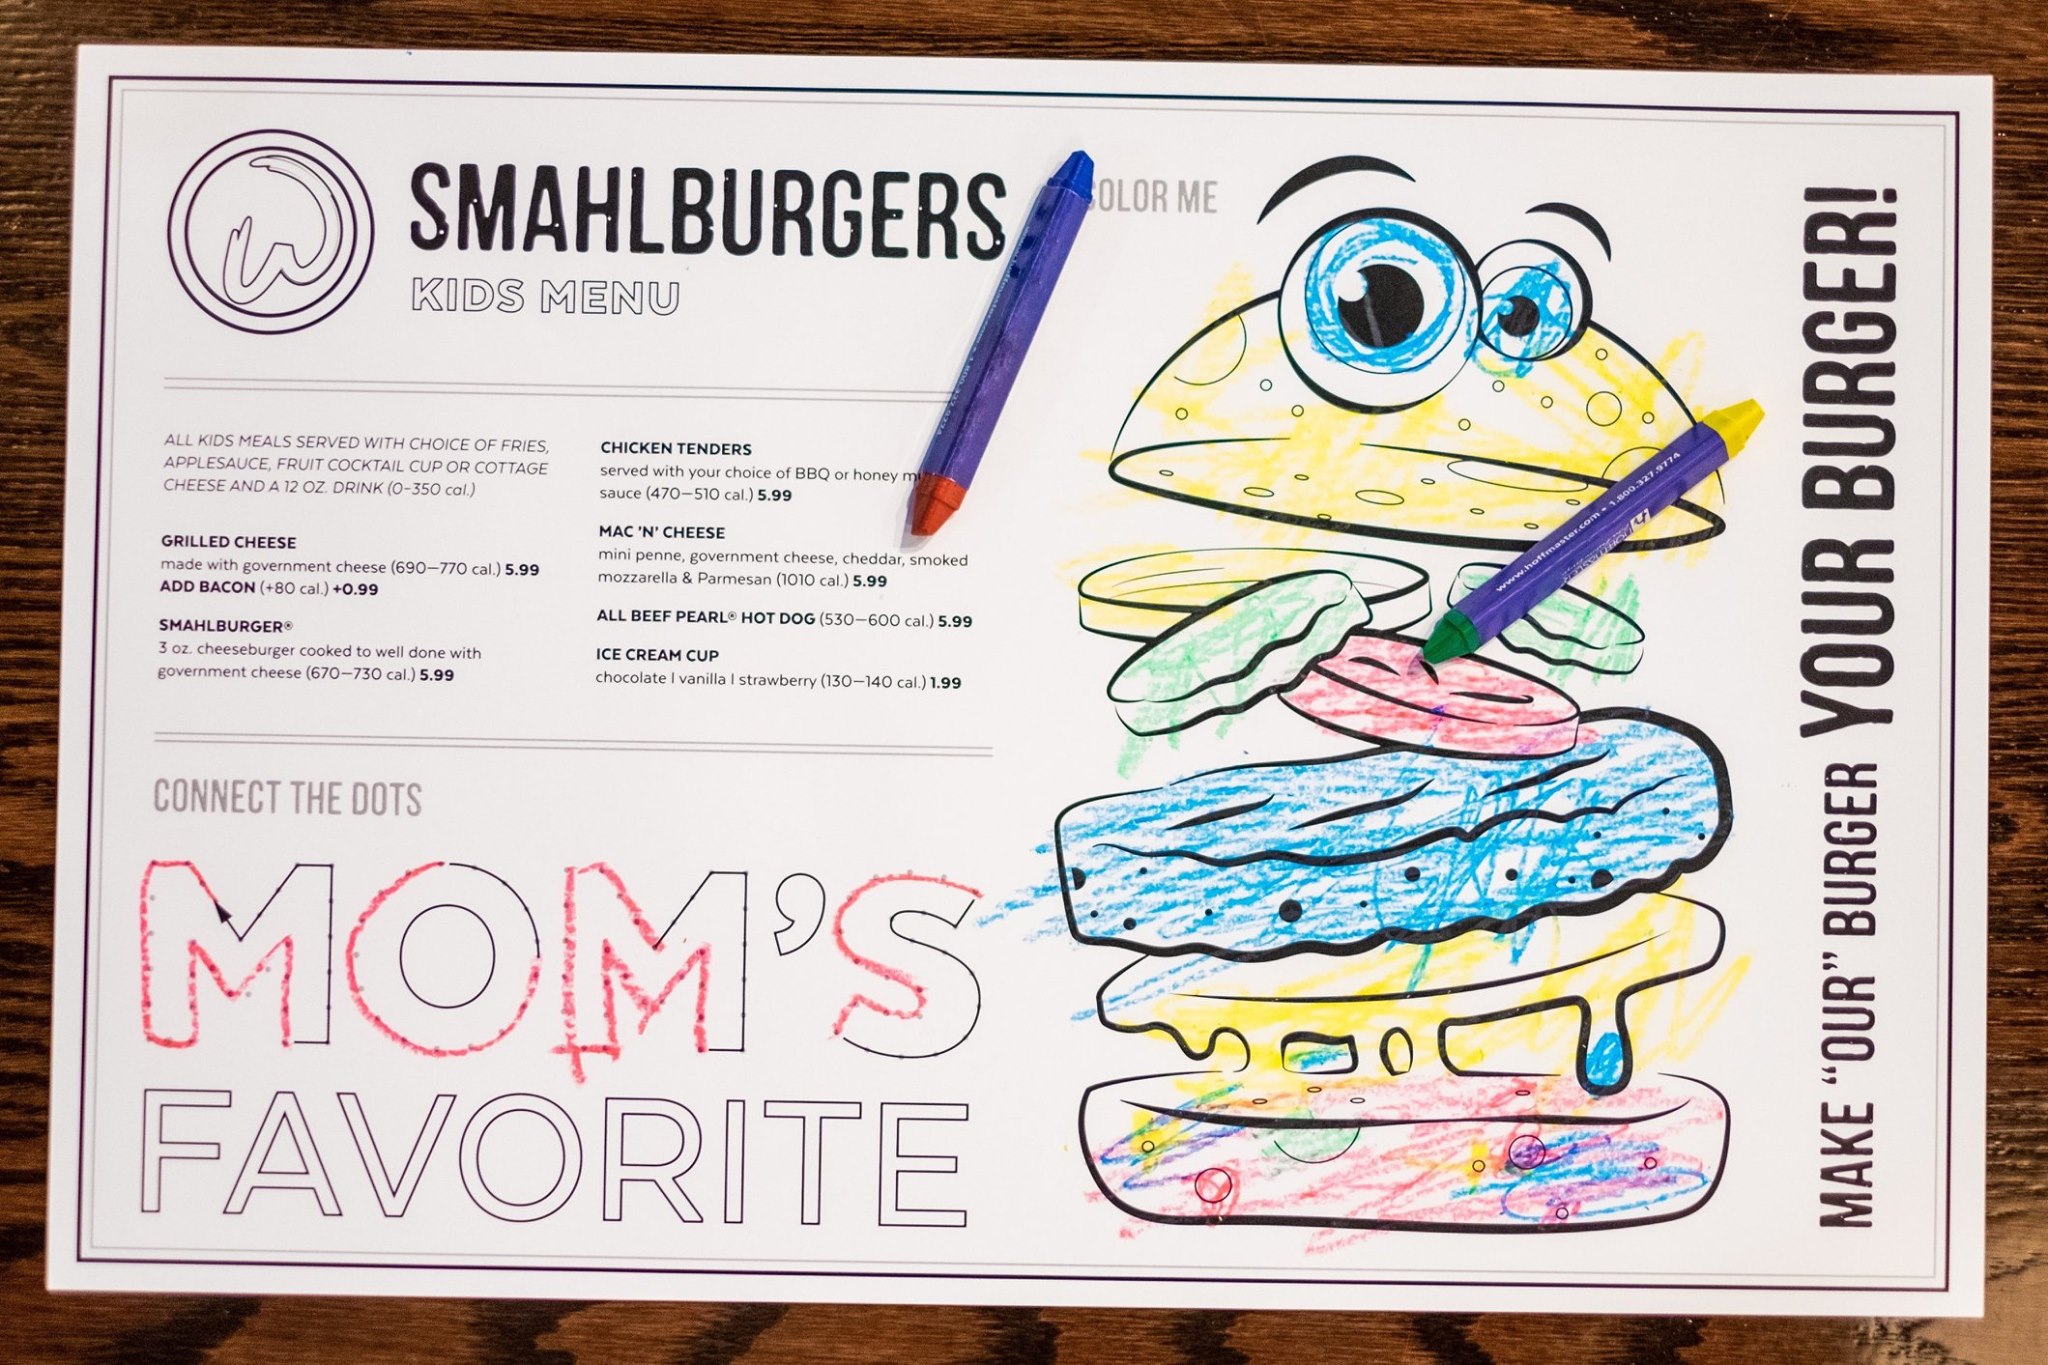 SMAHLBURGERS
KIDS MENU
ALL KIDS MEALS SERVED WITH CHOICE OF FRIES,
APPLESAUCE, FRUIT COCKTAIL CUP OR COTTAGE
CHEESE AND A 12 OZ. DRINK (0-350 cal.)
GRILLED CHEESE
made with government cheese (690—770 cal.) 5.99
ADD BACON (+80 cal.) +0.99
SMAHLBURGER®
3 oz. cheeseburger cooked to well done with
government cheese (670—730 cal.) 5.99
CHICKEN TENDERS
served with your choice of BBQ or honey
sauce (470—510 cal.) 5.99
MAC 'N' CHEESE
mini penne, government cheese, cheddar, smoked
mozzarella & Parmesan (1010 cal.) 5.99
ALL BEEF PEARL® HOT DOG (530—600 cal.) 5.99
ICE CREAM CUP
chocolate | vanilla | strawberry (130—140 cal.) 1.99
CONNECT THE DOTS
MOM'S
FAVORITE
COLOR ME
www.hoffmaster.com • 1.800.327.9774
MAKE “OUR” BURGER YOUR BURGER!